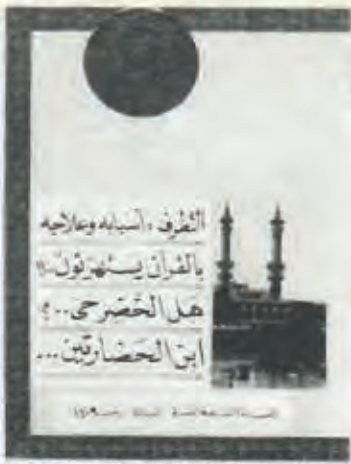 التطرف : أسبابه وعلاجه
بالقرآن يستهزئون..!!
هل الخضر حي..؟
ابن الحضارتين...